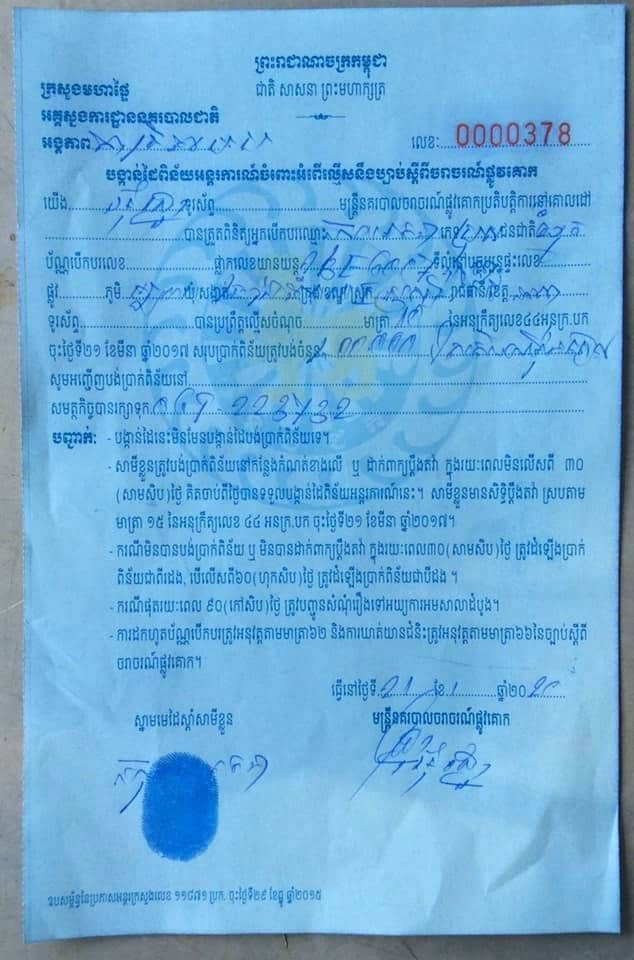 ព្រះរាជាណាចក្រកម្ពុជា
ជាតិ សាសនា ព្រះមហាក្សត្រ
ក្រសួងមហាផ្ទៃ
អគ្គស្នងការដ្ឋាននគរបាលជាតិ
អង្គភាព
លេខៈ 0000378
បង្កាន់ដៃពិន័យអន្តរការណ៍ចំពោះអំពើល្មើសនឹងច្បាប់ស្តីពីចរាចរណ៍ផ្លូវគោក
យើង ទូរស័ព្ទ មន្ត្រីនគរបាលចរាចរណ៍ផ្លូវគោកប្រតិបត្តិការនៅគោលដៅ
បានត្រួតពិនិត្យអ្នកបើកបរឈ្មោះ ភេទ ជនជាតិ
ប័ណ្ណបើកបរលេខ ផ្លាកលេខយានយន្ត ផ្ទះលេខ
ផ្លូវ ភូមិ ឃុំ/សង្កាត់ ក្រុង/ខណ្ឌ/ស្រុក រាជធានី/ខេត្ត
ទូរស័ព្ទ បានប្រព្រឹត្តល្មើសចំណុច មាត្រា នៃអនុក្រឹត្យលេខ៤៤អនក្រ.បក
ចុះថ្ងៃទី២១ ខែមីនា ឆ្នាំ២០១៧ សរុបប្រាក់ពិន័យត្រូវបង់ចំនួន
សូមអញ្ជើញបង់ប្រាក់ពិន័យនៅ
សមត្ថកិច្ចបានរក្សាទុក
បញ្ជាក់ៈ - បង្កាន់ដៃនេះមិនមែនបង្កាន់ដៃបង់ប្រាក់ពិន័យទេ។
- សាមីខ្លួនត្រូវបង់ប្រាក់ពិន័យនៅកន្លែងកំណត់ខាងលើ ឬ ដាក់ពាក្យប្តឹងតវ៉ា ក្នុងរយៈពេលមិនលើសពី ៣០
(សាមសិប)ថ្ងៃ គិតចាប់ពីថ្ងៃបានទទួលបង្កាន់ដៃពិន័យអន្តរការណ៍នេះ។ សាមីខ្លួនមានសិទ្ធិប្តឹងតវ៉ា ស្របតាម
មាត្រា ១៥ នៃអនុក្រឹត្យលេខ ៤៤ អនក្រ.បក ចុះថ្ងៃទី២១ ខែមីនា ឆ្នាំ២០១៧។
- ករណីមិនបានបង់ប្រាក់ពិន័យ ឬ មិនបានដាក់ពាក្យប្តឹងតវ៉ា ក្នុងរយៈពេល៣០(សាមសិប)ថ្ងៃ ត្រូវដំឡើងប្រាក់
ពិន័យជាពីរដង, បើលើសពី៦០(ហុកសិប)ថ្ងៃ ត្រូវដំឡើងប្រាក់ពិន័យជាបីដង ។
- ករណីផុតរយៈពេល ៩០(កៅសិប)ថ្ងៃ ត្រូវបញ្ជូនសំណុំរឿងទៅអយ្យការអមសាលាដំបូង។
- ការដកហូតប័ណ្ណបើកបរត្រូវអនុវត្តតាមមាត្រា៦២ និងការឃាត់យានជំនិះត្រូវអនុវត្តតាមមាត្រា៦៦នៃច្បាប់ស្តីពី
ចរាចរណ៍ផ្លូវគោក។
ធ្វើនៅថ្ងៃទី 21 ខែ 1 ឆ្នាំ២០20
ស្នាមមេដៃស្តាំសាមីខ្លួន
មន្ត្រីនគរបាលចរាចរណ៍ផ្លូវគោក
ឧបសម្ព័ន្ធនៃប្រកាសអន្តរក្រសួងលេខ ១១៨៧១ ប្រក. ចុះថ្ងៃទី២៩ ខែធ្នូ ឆ្នាំ២០១៥